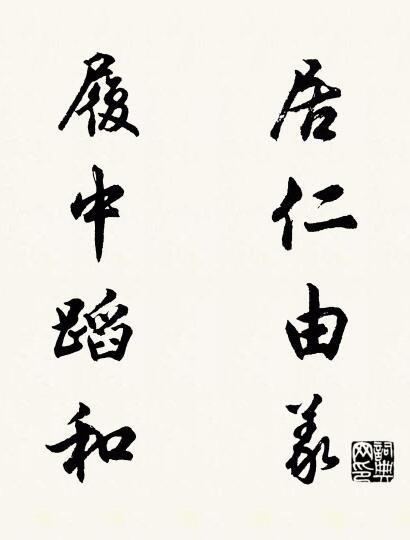 居仁由义
履中蹈和
詞典网印